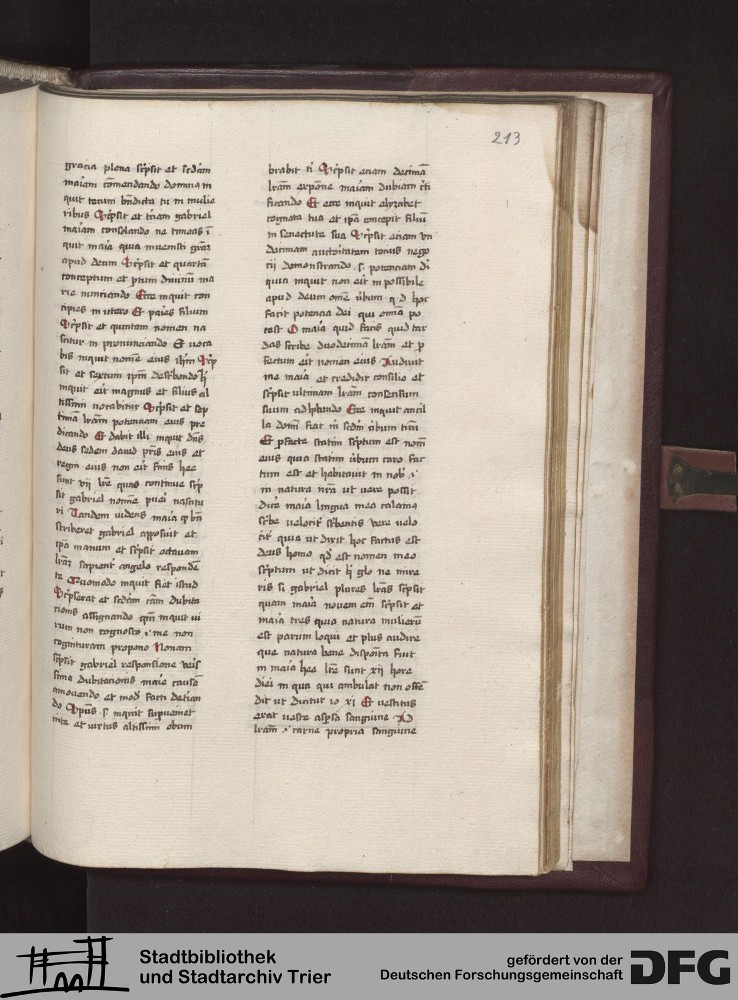 213
gracia plena scpsit et scdam
maiam comendando domina in
quit tecum bndicta tu in mulie
ribus Scpsit et tciam gabriel
mariam consolando ne timeas i
quit maia quia muenisti graz
apud deum Scpsit et quartā
conceptum et ptum diuinū ma
rie nunciando Ecce inquit con
cipies in utero Et paies filium
Scpsit et quintam nomen na
scitur in pronunciando Et voca
bis inquit nomē eius ihm Scp
sit et sextum ipm describendo h
inquit eit magnus et filius al
tissimi vocabitur Scpsit et sep
timā lram potenciam eius pre
dicando Et dabit illi inquit dns
deus sedem dauid pris eius et
regni eius non eit finis hee
sunt vij lre quas continue scp
sit gabriel nomē puei nascitu
ri Tandem videns maia qd
scriberet gabriel apposuit et
ipa manum et scpsit octauam
lraz sapient angelo responde
te Quomodo inquit fiet istud
Scpserat et scdam cam dubita
cionis assignando qm inquit vi
rum non cognosco .i. me non
cognituram propono Nonam
scpsit gabriel responsione veis
sima dubitacionis maie causā
amouendo et mod facti declan
do Spūs .s. inquit supueniet
in te et virtus altissimi obum
brabit ti Scpsit eciam decimā
lram expone maiam dubiam cti
ficando Et ecce inquit elyzabet
cognata tua et ipa concepit filiū
in senectute sua Scpsit eciam vn
decimam auctoritatem tocius nego
cii demonstrando .s. potenciam di
quia inquit non eit inpossibile
apud deum omē ubum q d hoc
facit potencia dei qui omia po
test O maia quid facis quid tar
das scribe duodecimā lram et p
fectum eit nomen eius Audiuit
me maia et credidit consilio et
scpsit ultimam lram consensum
suum adhibendo Ecce inquit ancil
la domi fiat m scdm ubum tuū
Et pfecte statim scptum est nom
eius quia statim ubum caro fac
tum est et habitauit in nob .i.
in natura nra ut vere possit
dice maia lingua mea calamus
scbe velocit scbentis vere velo
cit quia ut dixit hoc factus est
deus homo qd est nomen meo
scptum ut dicit h glo ne mire
ris si gabriel plures lras scpsit
quam maia nouem em scpsit et
maia tres quia natura mulierū
est parum loqui et plus audire
que natura bene disposita fuit
in maia hee lre sunt xij hore
diei in qua qui ambulat non offē
dit ut dicitur io xi Et vestitus
erat veste aspsa sanguine Ad
lram .i. carne propria sanguine
Stadtbibliothek
und Stadtarchiv Trier
gefördert von der
Deutschen Forschungsgemeinschaft
DFG